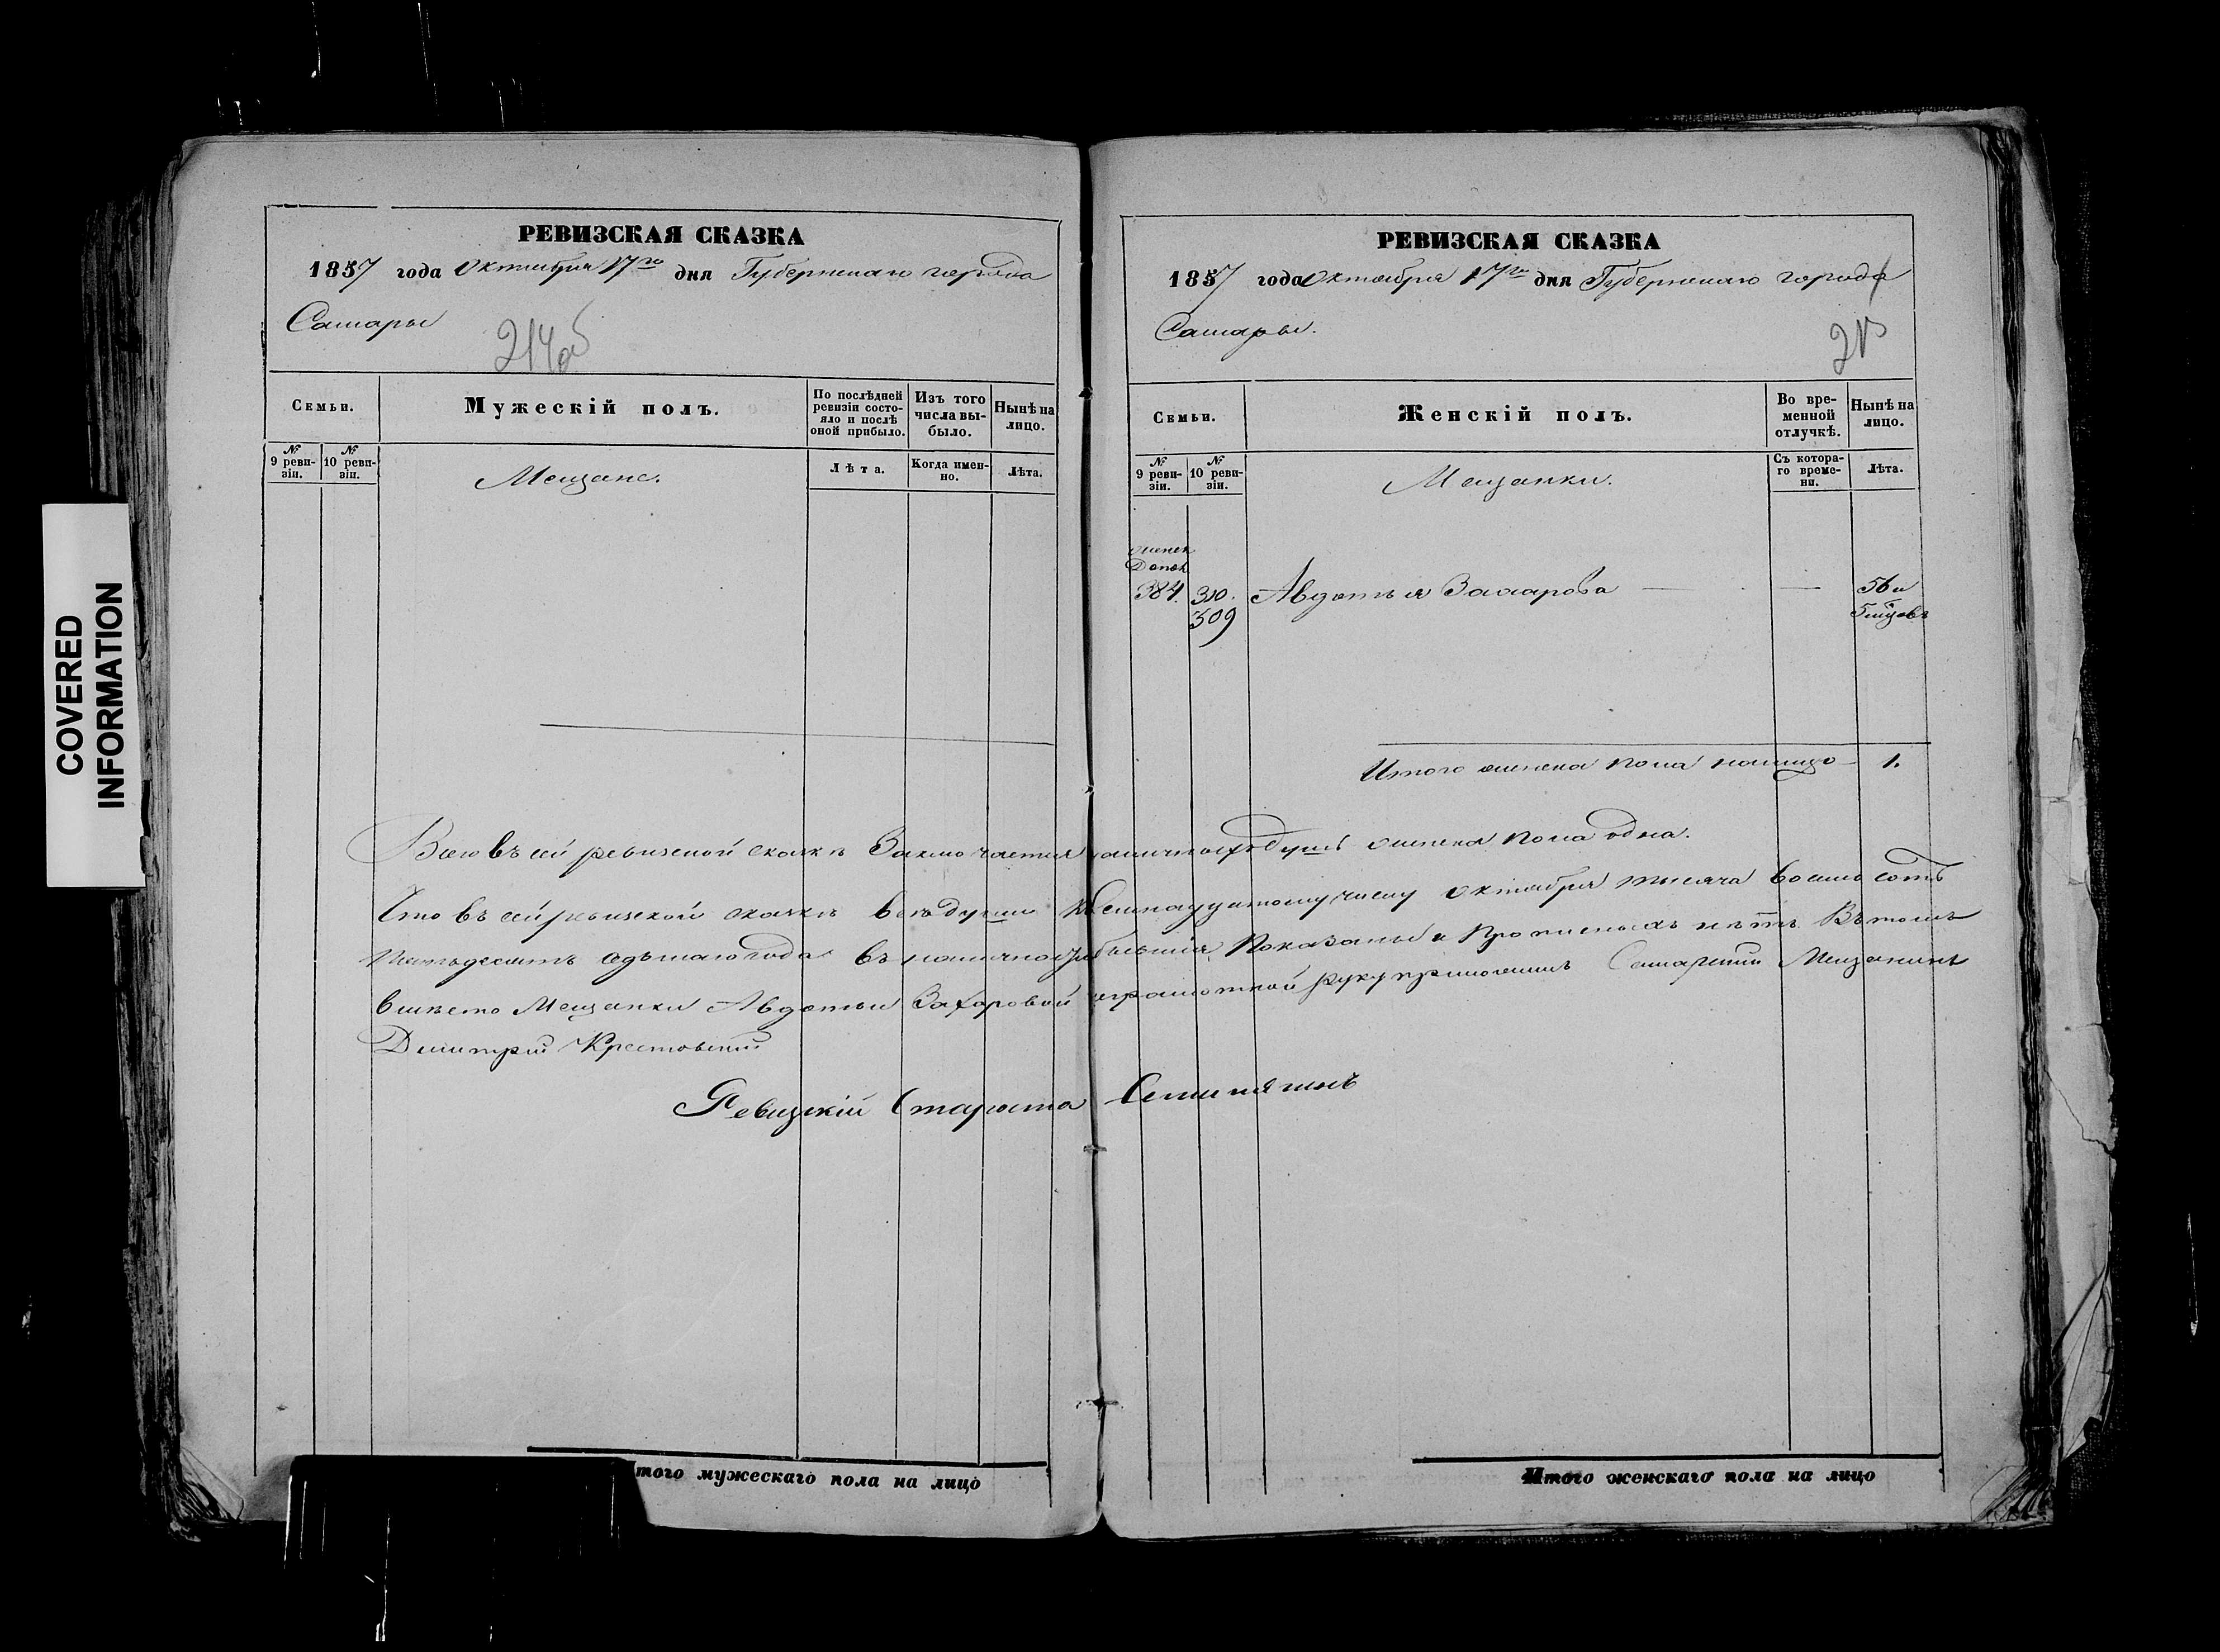 COVERED
INFORMATION
РЕВИЗСКАЯ СКАЗКА
1857 года Октября 17го дня Губернскаго города
Самары
214об
Семьи.
Мужескій полъ.
По послѣдней ревизіи состояло и послѣ оной прибыло.
Изъ того числа выбыло.
Нынѣ на лицо.
№ 9 ревизіи.
№ 10 ревизіи.
Мещане.
Лѣта.
Когда именно.
Лѣта.
РЕВИЗСКАЯ СКАЗКА
1857 года Октября 17го дня Губернскаго города
Самары.
Семьи.
Женскій полъ.
Во временной отлучкѣ.
Нынѣ на лицо.
№ 9 ревизіи.
№ 10 ревизіи.
Мещанки.
Съ котораго времени.
Лѣта.
384. 310. Авдотья Захарова — — 56 и
309
Итого женска пола налицо 1.
Всего въ сей ревизской сказкѣ Заключается наличныхъ душъ женска пола одна.
Что въ сей ревизской сказкѣ всѣ души къ Семнадцатому числу Октября тысяча восемь сотъ
Пятьдесятъ седьмаго года въ наличности бывшія Показаны и Прописныхъ нѣтъ Въ томъ
вмѣсто Мещанки Авдотьи Захаровой неграмотной руку приложилъ Самарскій Мещанинъ
Димитрій Крестовскій
Ревизскій Староста
Итого мужескаго пола на лицо
Итого женскаго пола на лицо